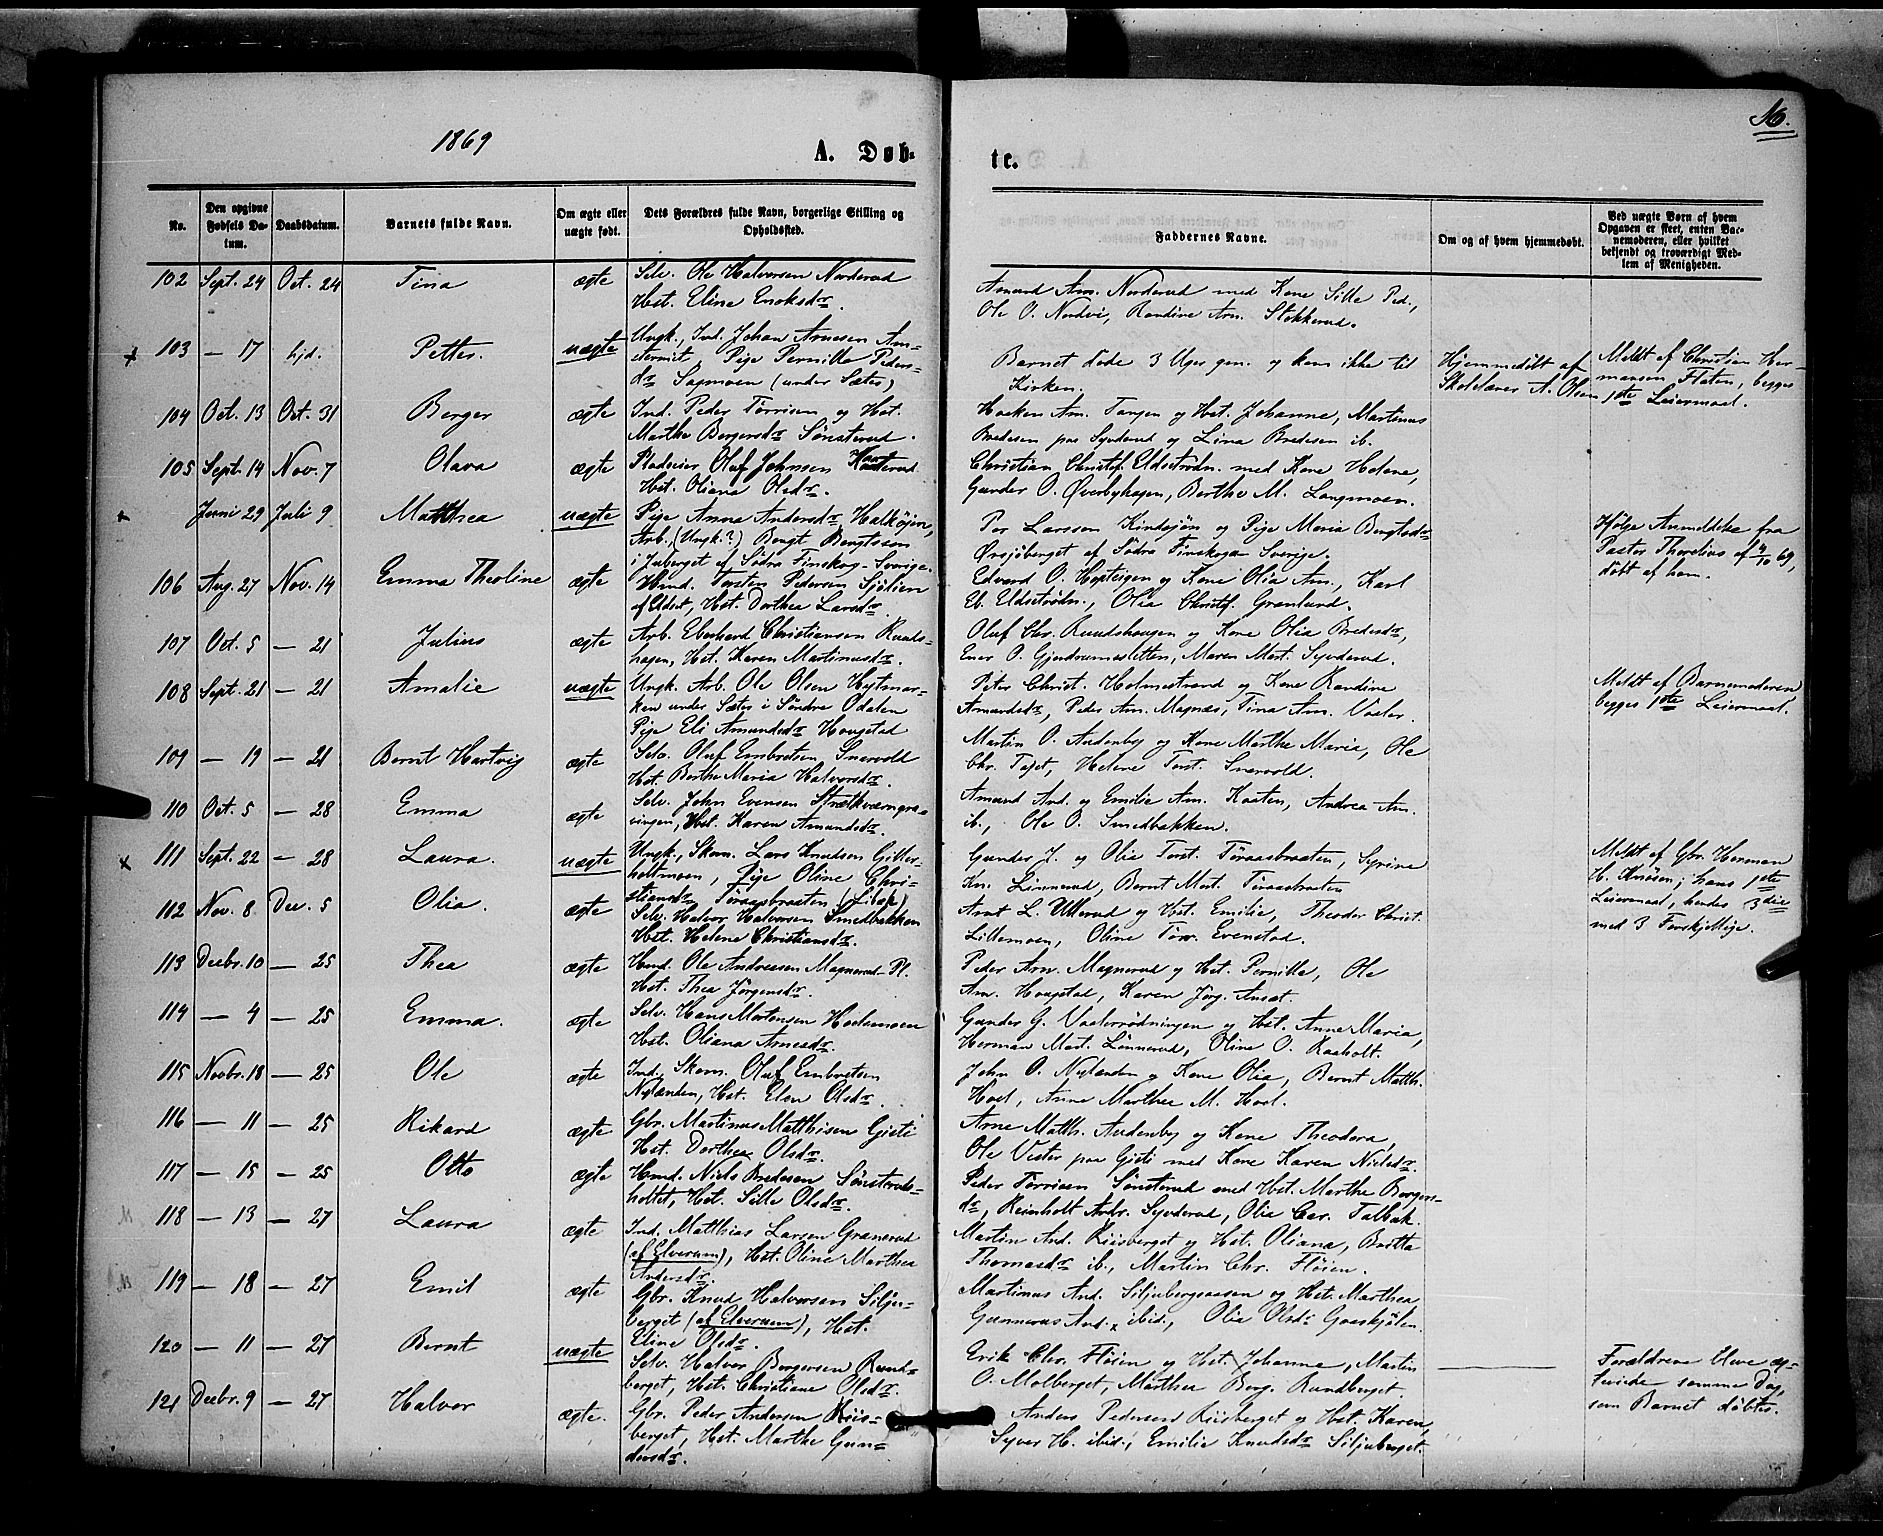 1869
A. Døb-
te.
16.
No.
Den opgivne Fødsels Da-tum.
Daabsdatum.
Barnets fulde Navn.
Om ægte eller uægte født.
Dets Forældres fulde Navn, borgerlige Stilling og Opholdssted.
Faddernes Navne.
Om og af hvem hjemmedøbt.
Ved uægte Børn af hvem Opgaven er skeet, enten Bar-nemoderen, eller hvilket bekjendt og troværdigt Med-lem af Menigheden.
102 Sept. 24 Oct. 24 Tina ægte
Selv. Ole Halvorsen Norderud
Hst. Eline Enoksdr.
Amund Am. Norderud med Kone Sille Ped.,
Ole O. Nordvi, Randine Am. Stokkerud.
103 — 17 hjd. Petter. uægte
Ungk., Ind. Johan Arnesen Am-
Pige Pernille Peders-
dr Sagmoen (under Sæter)
Barnet døde 3 Uger gm. og kom ikke til
Kirken.
Hjemmedöbt af
Skolelærer A. Olsen
Meldt af Christian Her-
mansen Flaten, begges
1ste Leiermaal.
104 Oct. 13 Oct. 31 Berger ægte
Ind. Peder Törrisen og Hst.
Marthe Bergersdr Sönsterud.
Haaken Am. Tangen og Hst. Johanne, Martinus
Bredesen paa Syverud og Lina Bredesen ib.
105 Sept. 14 Nov. 7 Olava ægte
Pladseier Oluf Johnsen
Hst. Oliana Olsdr.
Christian Christof. Eldströdn. med Kone Helene,
Gunder O. Överbyhagen, Berthe M. Langmoen.
Juni 29 Juli 9 Matthea uægte
Pige Anna Andersdr, Halsöjen,
Arb. (Ungk.?) Bengt Bengtsson
i Juberget af Södra Finskog - Sverige.
Per Larsson Kindsjön og Pige Maria Bengtsdr
Örsjöberget af Södra Finskoga Sverige.
Ifølge Anmeldelse fra
Pastor Thorelius af 4/10 69,
döbt af ham.
106 Aug. 27 Nov. 14 Emma Theoline ægte
Hmd. Torsten Pedersen Sjölien
af Eldset, Hst. Dorthea Larsdr.
Edvard O. Hepteigen og Kone Olia Am., Karl
Eb. Eldströdn., Olia Christof. Granlund.
107 Oct. 5 — 21 Julius ægte
Arb. Eberhard Christiansen Runds-
hagen, Hst. Karen Martinusdr.
Oluf Chr. Rundshaugen og Kone Olia Bredesdr,
Ener O. Gjendrumsletten, Maren Mart. Syverud.
108 Sept. 21 — 21 Amalie uægte
Ungk. Arb. Ole Olsen Hytmar-
ken under Sæter i Söndre Odalen
Pige Eli Amundsdr Hougstad
Peter Christ. Holmestrand og Kone Randine
Amundsdr, Peder Am. Magnæs, Tina Am. Vaaler.
Meldt af Barnemoderen,
begges 1ste Leiermaal.
109 — 19 — 21 Bernt Hartvig ægte
Selv. Oluf Embretsen Snarvold
Hst. Berthe Maria Halvorsdr.
Martin O. Audenby og Kone Marthe Maria, Ole
Chr. Tajet, Helene Torst. Snarvold.
110 Oct. 5 — 28 Emma ægte
Selv. John Evensen Strætkværngra-
vingen, Hst. Karen Amundsdr.
Amund And. og Emilie Am. Kaaten, Andrea Am.
ib., Ole O. Smedbakken.
111 Sept. 22 — 28 Laura. uægte
Ungk., Skom. Lars Knudsen Gitter-
holtmoen, Pige Oline Chri-
stiansdr Töraasbraaten
Gunder J. og Olia Torst. Töraasbraaten, Syrine
Kn. Linnerud, Bernt Mart. Töraasbraaten
Meldt af Gbr. Herman
H. Knösen; hans 1ste
Leiermaal, hendes 3die
med 3 Forskjellige.
112 Nov. 8 Dec. 5 Olia. ægte
Selv. Halvor Halvorsen Smedbakken
Hst. Helene Christiansdr.
Arnt L. Ullerud og Hst. Emilie, Theodor Christ.
Lillemoen, Oline Törr. Evenstad.
113 Decbr. 10 — 25 Thea ægte
Hmd. Ole Andreasen Magnerud Pl.
Hst. Thea Jörgensdr.
Peder Am. Magnerud og Hst. Pernille, Ole
Am. Hougstad, Karen Jörg. Anset.
114 — 4 — 25 Emma. ægte
Selv. Hans Mortensen Hoelsmoen
Hst. Oliana Arnesdr.
Gunder G. Vaalerrödningen og Hst. Anne Maria,
Herman Mart. Linnerud, Oline O. Raaholt.
115 Novbr. 18 — 25 Ole ægte
Ind., Skom. Oluf Embretsen
Nylænden, Hst. Elen Olsdr.
John O. Nylænden og Kone Olia, Bernt Matth.
Hoel, Anne Marthea M. Hoel.
116 — 11 — 25 Rikard ægte
Gbr. Martinus Matthisen Gjeti
Hst. Dorthea Olsdr.
Arne Matth. Audenby og Kone Theodora,
Ole Vester paa Gjeti med Kone Karen Nielsdr.
117 — 15 — 25 Otto ægte
Hmd. Niels Bredesen Sönsteruds-
holtet, Hst. Sille Olsdr.
Peder Törrisen Sönsterud med Hst. Marthe Bergers-
dr, Reinholt Ambr. Syverud, Olia Car. Talbak.
118 — 13 — 27 Laura ægte
Ind. Matthias Larsen Granerud
(af Elverum), Hst. Oline Marthea
Andersdr.
Martin And. Riisberget og Hst. Oliana, Beritte
Thomasdr ib., Martin Chr. Flöien.
119 — 18 — 27 Emil ægte
Gbr. Knud Halvorsen Silju-
berget (af Elverum), Hst.
Eline Olsdr.
Martinus And. Siljubergsaasen og Hst. Marthea
Gunnerus And. ibid., Olia Olsdr Gaaskjölen.
120 — 11 — 27 Bernt uægte
Selv. Halvor Borgersen Rund-
berget, Hst. Christiane Olsdr.
Erik Chr. Flöien og Hst. Johanne, Martin
O. Molberget, Marthea Borg. Rundberget.
Forældrene bleve æg-
teviede samme Dag,
som Barnet döbtes.
121 Decbr. 9 — 27 Halvor ægte.
Gbr. Peder Andersen Riis-
berget, Hst. Marthe Gun-
dersdr.
Anders Pedersen Riisberget og Hst. Karen,
Syver H. ibid., Emilie Knudsdr Siljuberget.